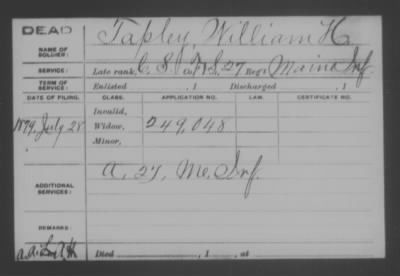 DEAD
NAME OF SOLDIER: Tapley, William H.
SERVICE: Late rank, C.S., Co. F&S, 27 Reg't Maine Inf.
TERM OF SERVICE: Enlisted , 1 Discharged , 1
DATE OF FILING. CLASS. APPLICATION NO. LAW. CERTIFICATE NO.
Invalid,
1879, July 28. Widow, 249,048
Minor,
ADDITIONAL SERVICES: A, 27, Me. Inf.
REMARKS:
Died , 1 , at